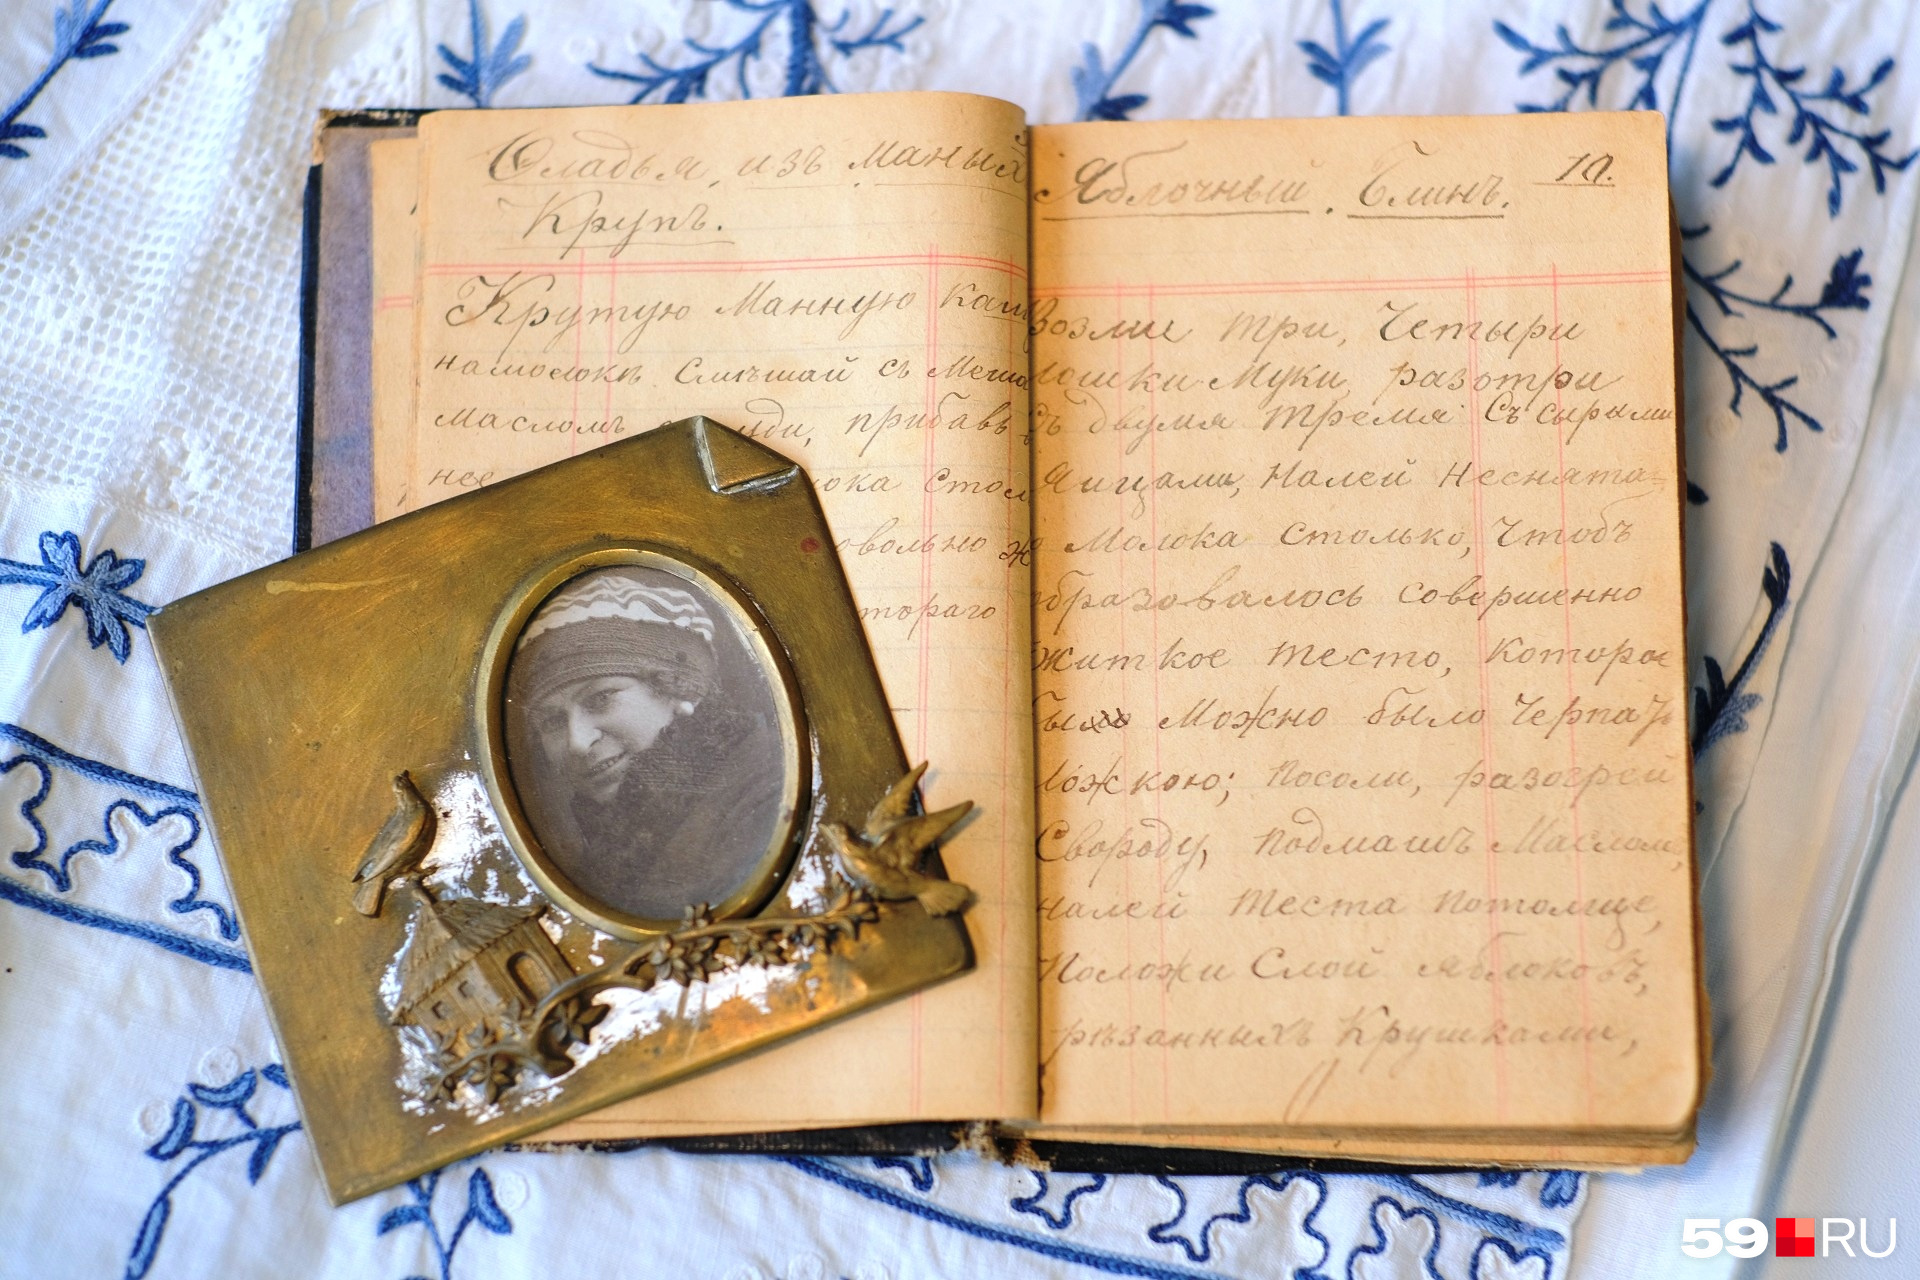 Оладьи, изъ маных
Крупъ.
Крутую Манную каш
намолокѣ Смѣшай съ
масломъ прибавь
нее
овольно
тораго
10.
Яблочный. Блинъ.
Возми три, Четыри
ложки Муки, разотри
съ двумя тремя съ сырыми
Яицами, налей неснята-
Молока столько, Чтобъ
образовалось совершенно
житкое тесто, Которое
бы Можно было Черпать
ложкою; посоли, разогрей
Свороду, подмашь Маслом,
налей теста потолще,
положи Слой яблоковъ,
рѣзанныхъ Крушками,
59.RU